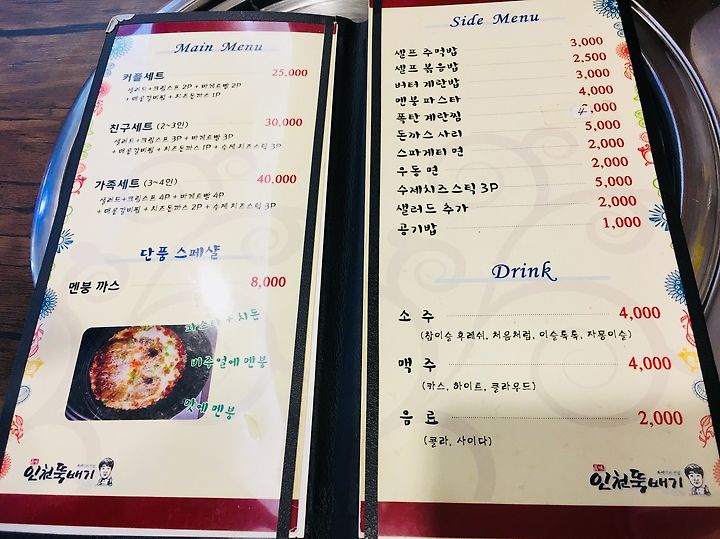 Main Menu
커플세트 25,000
샐러드+크림스프 2P + 바게트빵 2P
+ 매콤갈비찜 + 치즈돈까스 1P
친구세트 (2~3인) 30,000
샐러드+크림스프 3P + 바게트빵 3P
+ 매콤갈비찜 + 치즈돈까스 1P + 수제치즈스틱 3P
가족세트 (3~4인) 40,000
샐러드+크림스프 4P + 바게트빵 4P
+ 매콤갈비찜 + 치즈돈까스 2P + 수제치즈스틱 3P
단풍 스페샬
멘붕 까스 8,000
파스타 + 치돈
비주얼에 멘붕
맛에 멘붕
인천뚝배기
Side Menu
셀프 주먹밥 3,000
셀프 볶음밥 2,500
버터 계란밥 3,000
멘붕 파스타 4,000
폭탄 계란찜 4,000
돈까스 사리 5,000
스파게티 면 2,000
우동 면 2,000
수제치즈스틱 3P 5,000
샐러드 추가 2,000
공기밥 1,000
Drink
소 주 4,000
(참이슬 후레쉬, 처음처럼, 이슬톡톡, 자몽이슬)
맥 주 4,000
(카스, 하이트, 클라우드)
음 료 2,000
(콜라, 사이다)
인천뚝배기